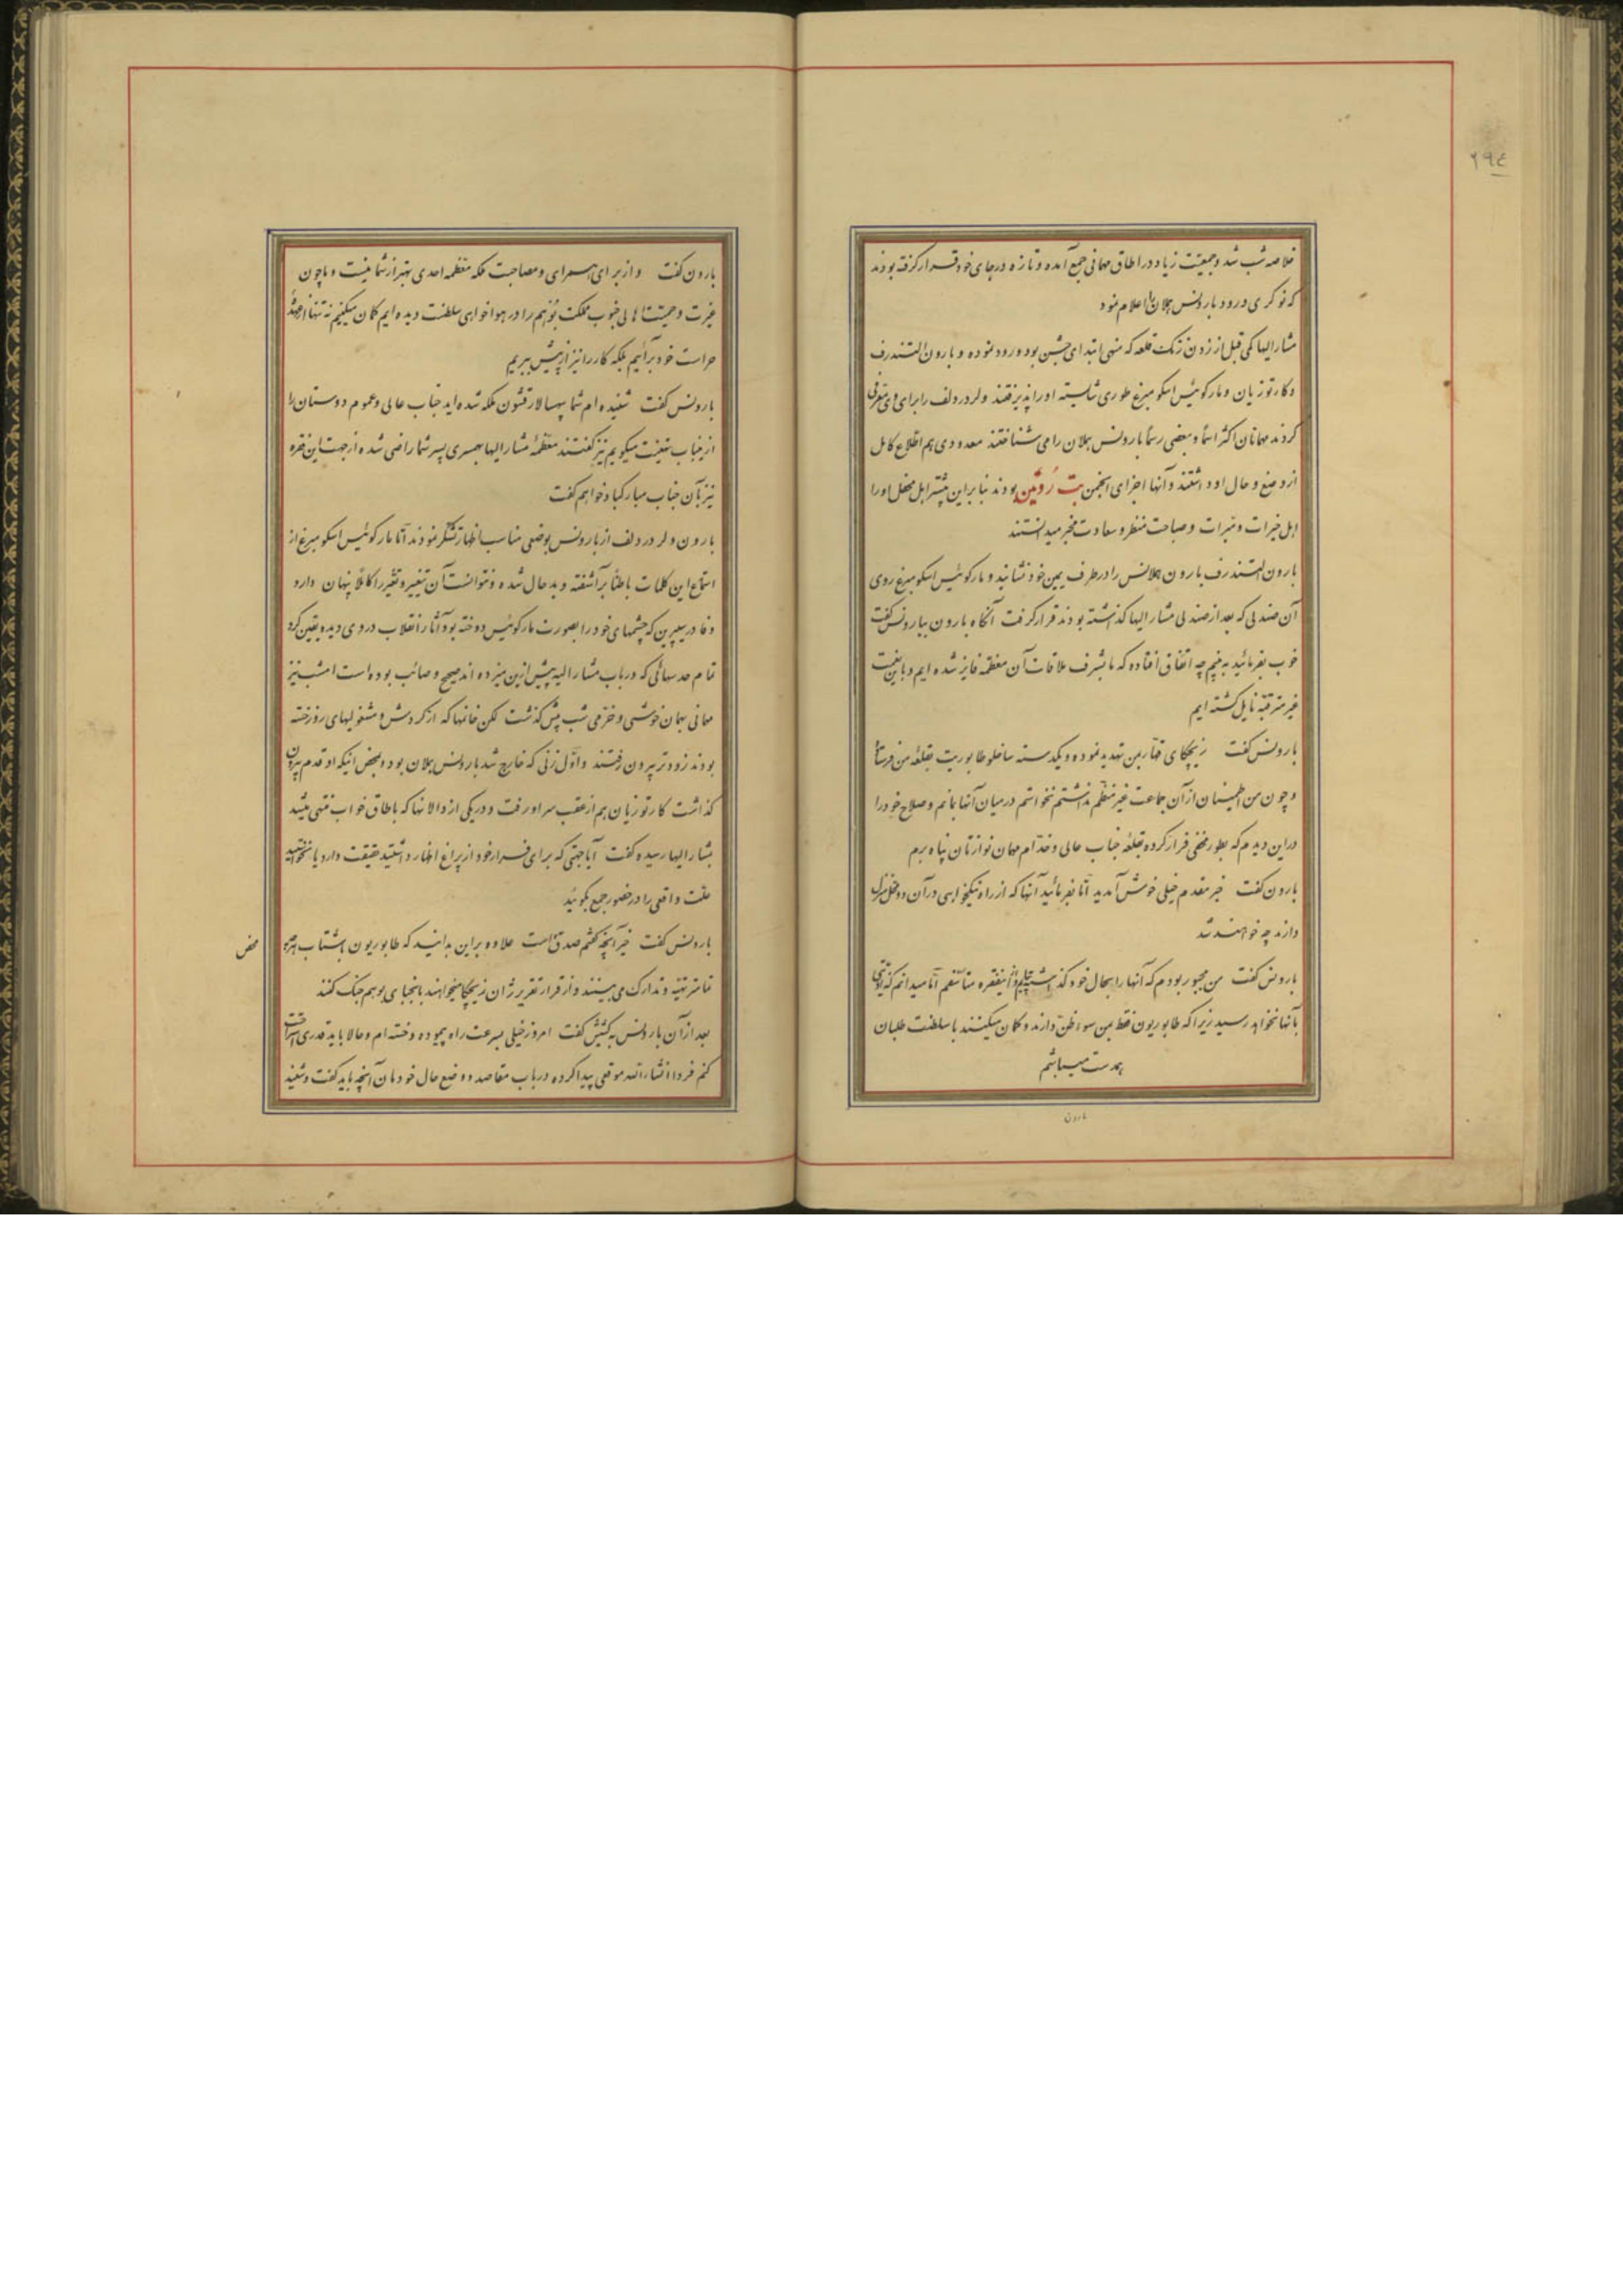 ٢٩٤
خلاصه شب شد و جمعیت زیاد در اطاق مهمانی جمع آمده و تازه در جای خود قرار گرفته بودند
که نوکری ورود بارونس هلان را اعلام نمود
مشار الیها کمی قبل از زدن زنگ قلعه که منهی ابتدای جشن بود ورود نموده و بارون التندرف
و کارتوزیان و مارکوئیس اسکومبرغ طوری شایسته او را پذیرفتند ولردرولف را برای وی معرفی
کردند مهمانان اکثر اسماً و بعضی رسماً بارونس هلان را می شناختند معدودی هم اطلاع کامل
از وضع و حال او داشتند و آنها اجزای انجمن بت رُوئین بودند بنابراین بیشتر اهل محفل او را
اهل خیرات و مبرات و صباحت منظر و سعادت مخبر میدانستند
بارون التندرف بارون هلانس را در طرف یمین خود نشانید و مارکوئیس اسکومبرغ روی
آن صندلی که بعد از صندلی مشار الیها گذاشته بودند قرار گرفت آنگاه بارون ببارونس گفت
خوب بفرمائید به بینم چه اتفاق افتاده که ما بشرف ملاقات آن معظمه فایز شده ایم و باین نعمت
غیر مترقبه نایل گشته ایم
بارونس گفت زیچکای قهار بمن تهدید نموده و یکدسته ساخلو طابوریت بقلعه من فرستاد
و چون من اطمینان از آن جماعت غیر منظم نداشتم نخواستم در میان آنها بمانم و صلاح خود را
در این دیدم که بطور مخفی فرار کرده بقلعه جناب عالی و خدّام مهمان نوازتان پناه برم
بارون گفت خیر مقدم خیلی خوش آمدید امّا بفرمائید آنها که از راه نیکخواهی در آن دو محل منزل
دارند چه خواهند شد
بارونس گفت من مجبور بودم که آنها را بحال خود گذاشته بیایم و از اینفقره متأسفم امّا میدانم که اذیتی
بآنها نخواهد رسید زیرا که طابوریون فقط بمن سوء ظن دارند و گمان میکنند با سلطنت طلبان
همدست میباشم
بارون
بارون گفت و از برای همسرای و مصاحبت ملکه معظمه احدی بهتر از شما نیست و ما چون
غیرت و حمیت اهالی جنوب مملکت بُوهم را در هواخواهی سلطنت دیده ایم گمان میکنیم نه تنها از عهدهٔ
حراست خود برآئیم بلکه کار را نیز از پیش ببریم
بارونس گفت شنیده ام شما سپهسالار قشون ملکه شده اید جناب عالی و عموم دوستان را
از اینباب تهنیت میگویم نیز گفتند معظمهٔ مشار الیها بهمسری پسر شما راضی شده از جهت این فقره
نیز بآن جناب مبارکباد خواهم گفت
بارون ولردرولف از بارونس بوضعی مناسب اظهار تشکر نمودند امّا مارکوئیس اسکومبرغ از
استماع این کلمات باطناً برآشفته و بدحال شده و نتوانست آن تغییر و تغیّر را کاملاً پنهان دارد
و فادر سیپرین که چشمهای خود را بصورت مارکوئیس دوخته بود آثار انقلاب در وی دیده یقین کرد
تمام حدسهائی که در باب مشار الیه پیش ازین میزده اند صحیح و صائب بوده است امشب نیز
مهمانی بهمان خوشی و خرمی شب پیش گذشت لکن خانمها که از گردش و مشغولیهای روز خسته
بودند زودتر بیرون رفتند و اوّل زنی که خارج شد بارونس هلان بود و بمحض اینکه او قدم بیرون
گذاشت کارتوزیان هم از عقب سر او رفت و در یکی از دالانها که باطاق خواب منتهی میشد
بمشار الیها رسیده گفت آیا جهتی که برای فرار خود از پراغ اظهار داشتید حقیقت دارد یا نخواستید
علت واقعی را در حضور جمع بگوئید
بارونس گفت خیر آنچه گفتم صدق است علاوه براین بدانید که طابوریون با شتاب هر چه
تمامتر تهیه و تدارک می بینند و از قرار تقریر ژان زیچکا میخواهند با نجبای بوهم جنگ کنند
بعد از آن بارونس بکشیش گفت امروز خیلی بسرعت راه پیموده و خسته ام و حالا باید قدری استراحت
کنم فردا انشاء الله موقعی پیدا کرده در باب مقاصد و وضع حال خودمان آنچه باید گفت و شنید